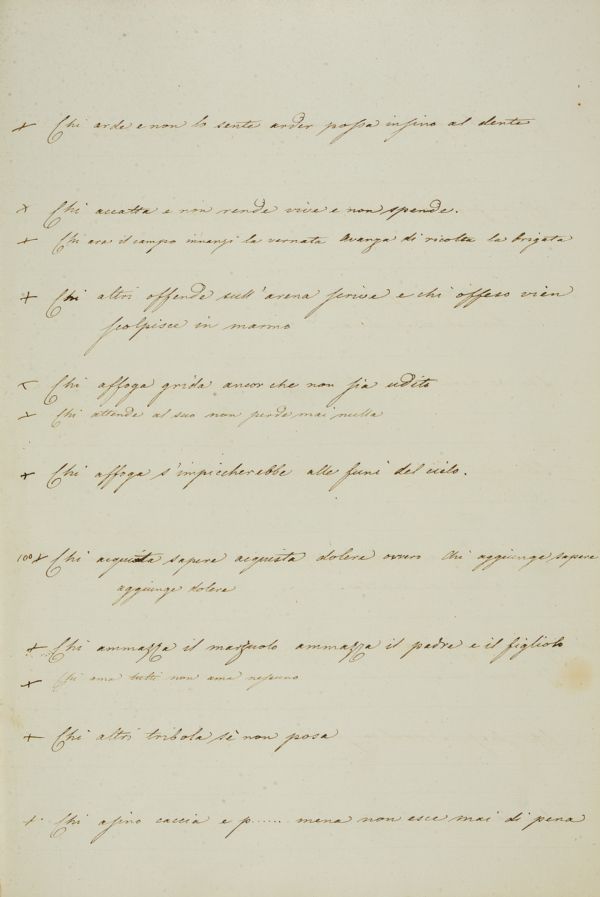 + Chi arde e non lo sente arder possa insino al dente
+ Chi accatta e non rende vive e non spende.
+ Chi ara il campo innanzi la vernata Avanza di ricolta la brigata
+ Chi altri offende sull'arena scrive e chi offeso vien
scolpisce in marmo
+ Chi affoga grida ancorche non sia udito
+ Chi attende al suo non perde mai nulla
+ Chi affoga s'impiccherebbe alle funi del cielo.
100 + Chi acquista sapere acquista dolere ovvero Chi aggiunge sapere
aggiunge dolere
+ Chi ammazza il marzuolo ammazza il padre e il figliolo
+ Chi ama tutti non ama nessuno
+ Chi altri tribola sè non posa
+ Chi asino caccia e p...... mena non esce mai di pena